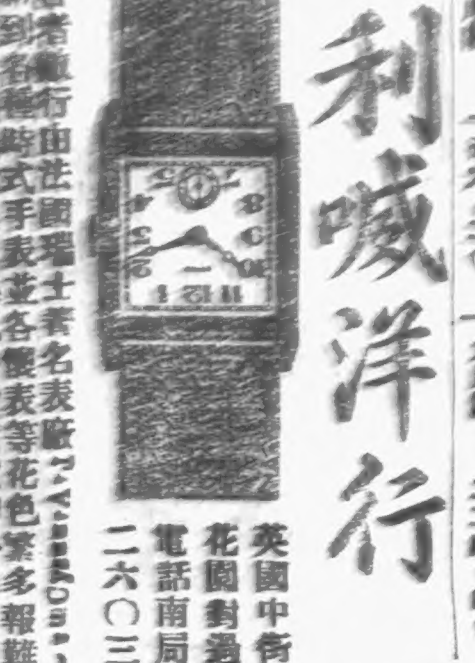 利喊洋行
英國中街
花園對過
電話南局
二六〇三
者敝行由法國瑞士著名表廠
到各種時式手表並各懷表等花色繁多報難